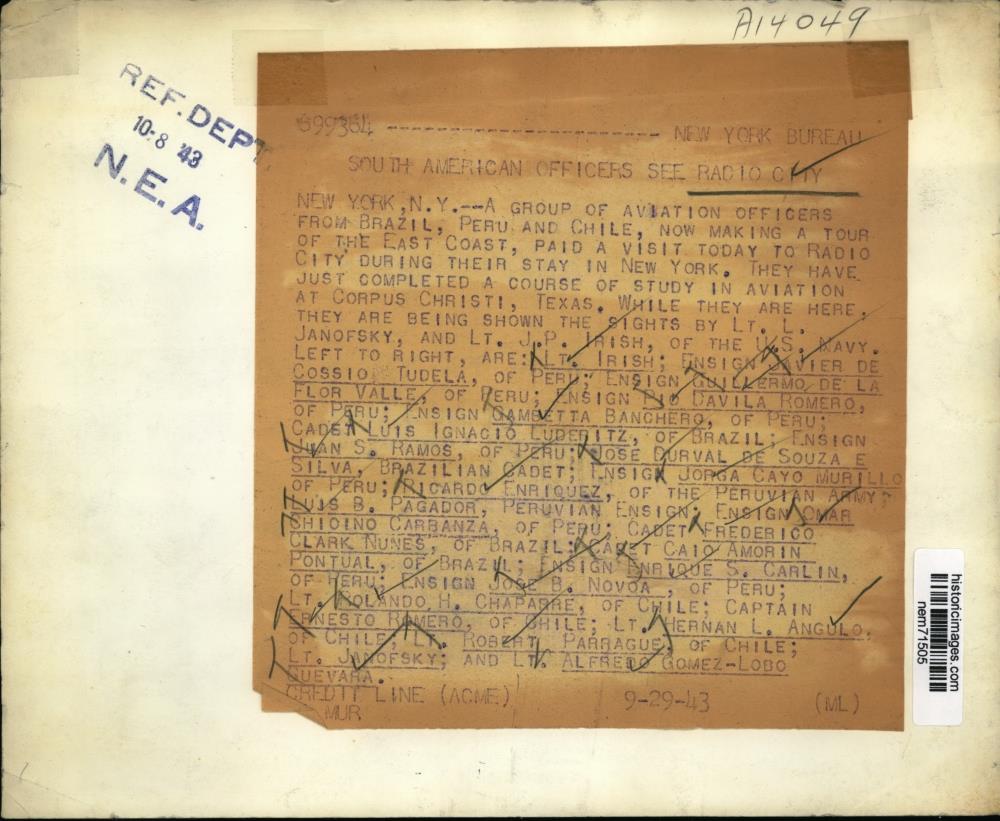 A14049
REF. DEPT
10-8 '43
N.E.A.
699364 ---------------------------- NEW YORK BUREAU
SOUTH AMERICAN OFFICERS SEE RADIO CITY
NEW YORK, N.Y.--A GROUP OF AVIATION OFFICERS
FROM BRAZIL, PERU AND CHILE, NOW MAKING A TOUR
OF THE EAST COAST, PAID A VISIT TODAY TO RADIO
CITY DURING THEIR STAY IN NEW YORK. THEY HAVE
JUST COMPLETED A COURSE OF STUDY IN AVIATION
AT CORPUS CHRISTI, TEXAS. WHILE THEY ARE HERE,
THEY ARE BEING SHOWN THE SIGHTS BY LT. L.
JANOFSKY, AND LT. J.P. IRISH, OF THE U.S. NAVY.
LEFT TO RIGHT, ARE: LT. IRISH; ENSIGN JAVIER DE
COSSIO TUDELA, OF PERU; ENSIGN GUILLERMO DE LA
FLOR VALLE, OF PERU; ENSIGN DAVILA ROMERO,
OF PERU; ENSIGN GAMBETTA BANCHERO, OF PERU;
CADET LUIS IGNACIO LUDERITZ, OF BRAZIL; ENSIGN
JUAN S. RAMOS, OF PERU; JOSE DURVAL DE SOUZA E
SILVA, BRAZILIAN CADET; ENSIGN JORGA CAYO MURILLO
OF PERU; RICARDO ENRIQUEZ, OF THE PERUVIAN ARMY;
LUIS B. PAGADOR, PERUVIAN ENSIGN; ENSIGN OMAR
SHIOINO CARBANZA, OF PERU; CADET FREDERICO
CLARK NUNES, OF BRAZIL; CADET CAIO AMORIN
PONTUAL, OF BRAZIL; ENSIGN ENRIQUE S. CARLIN,
OF PERU; ENSIGN JOSE B. NOVOA, OF PERU;
LT. ROLANDO H. CHAPARRE, OF CHILE; CAPTAIN
ERNESTO ROMERO, OF CHILE; LT. HERNAN L. ANGULO,
OF CHILE; LT. ROBERT PARRAGUE, OF CHILE;
LT. JANOFSKY; AND LT. ALFREDO GOMEZ-LOBO
GUEVARA.
CREDIT LINE (ACME) 9-29-43 (ML)
MUR
historicimages.com
nem71505